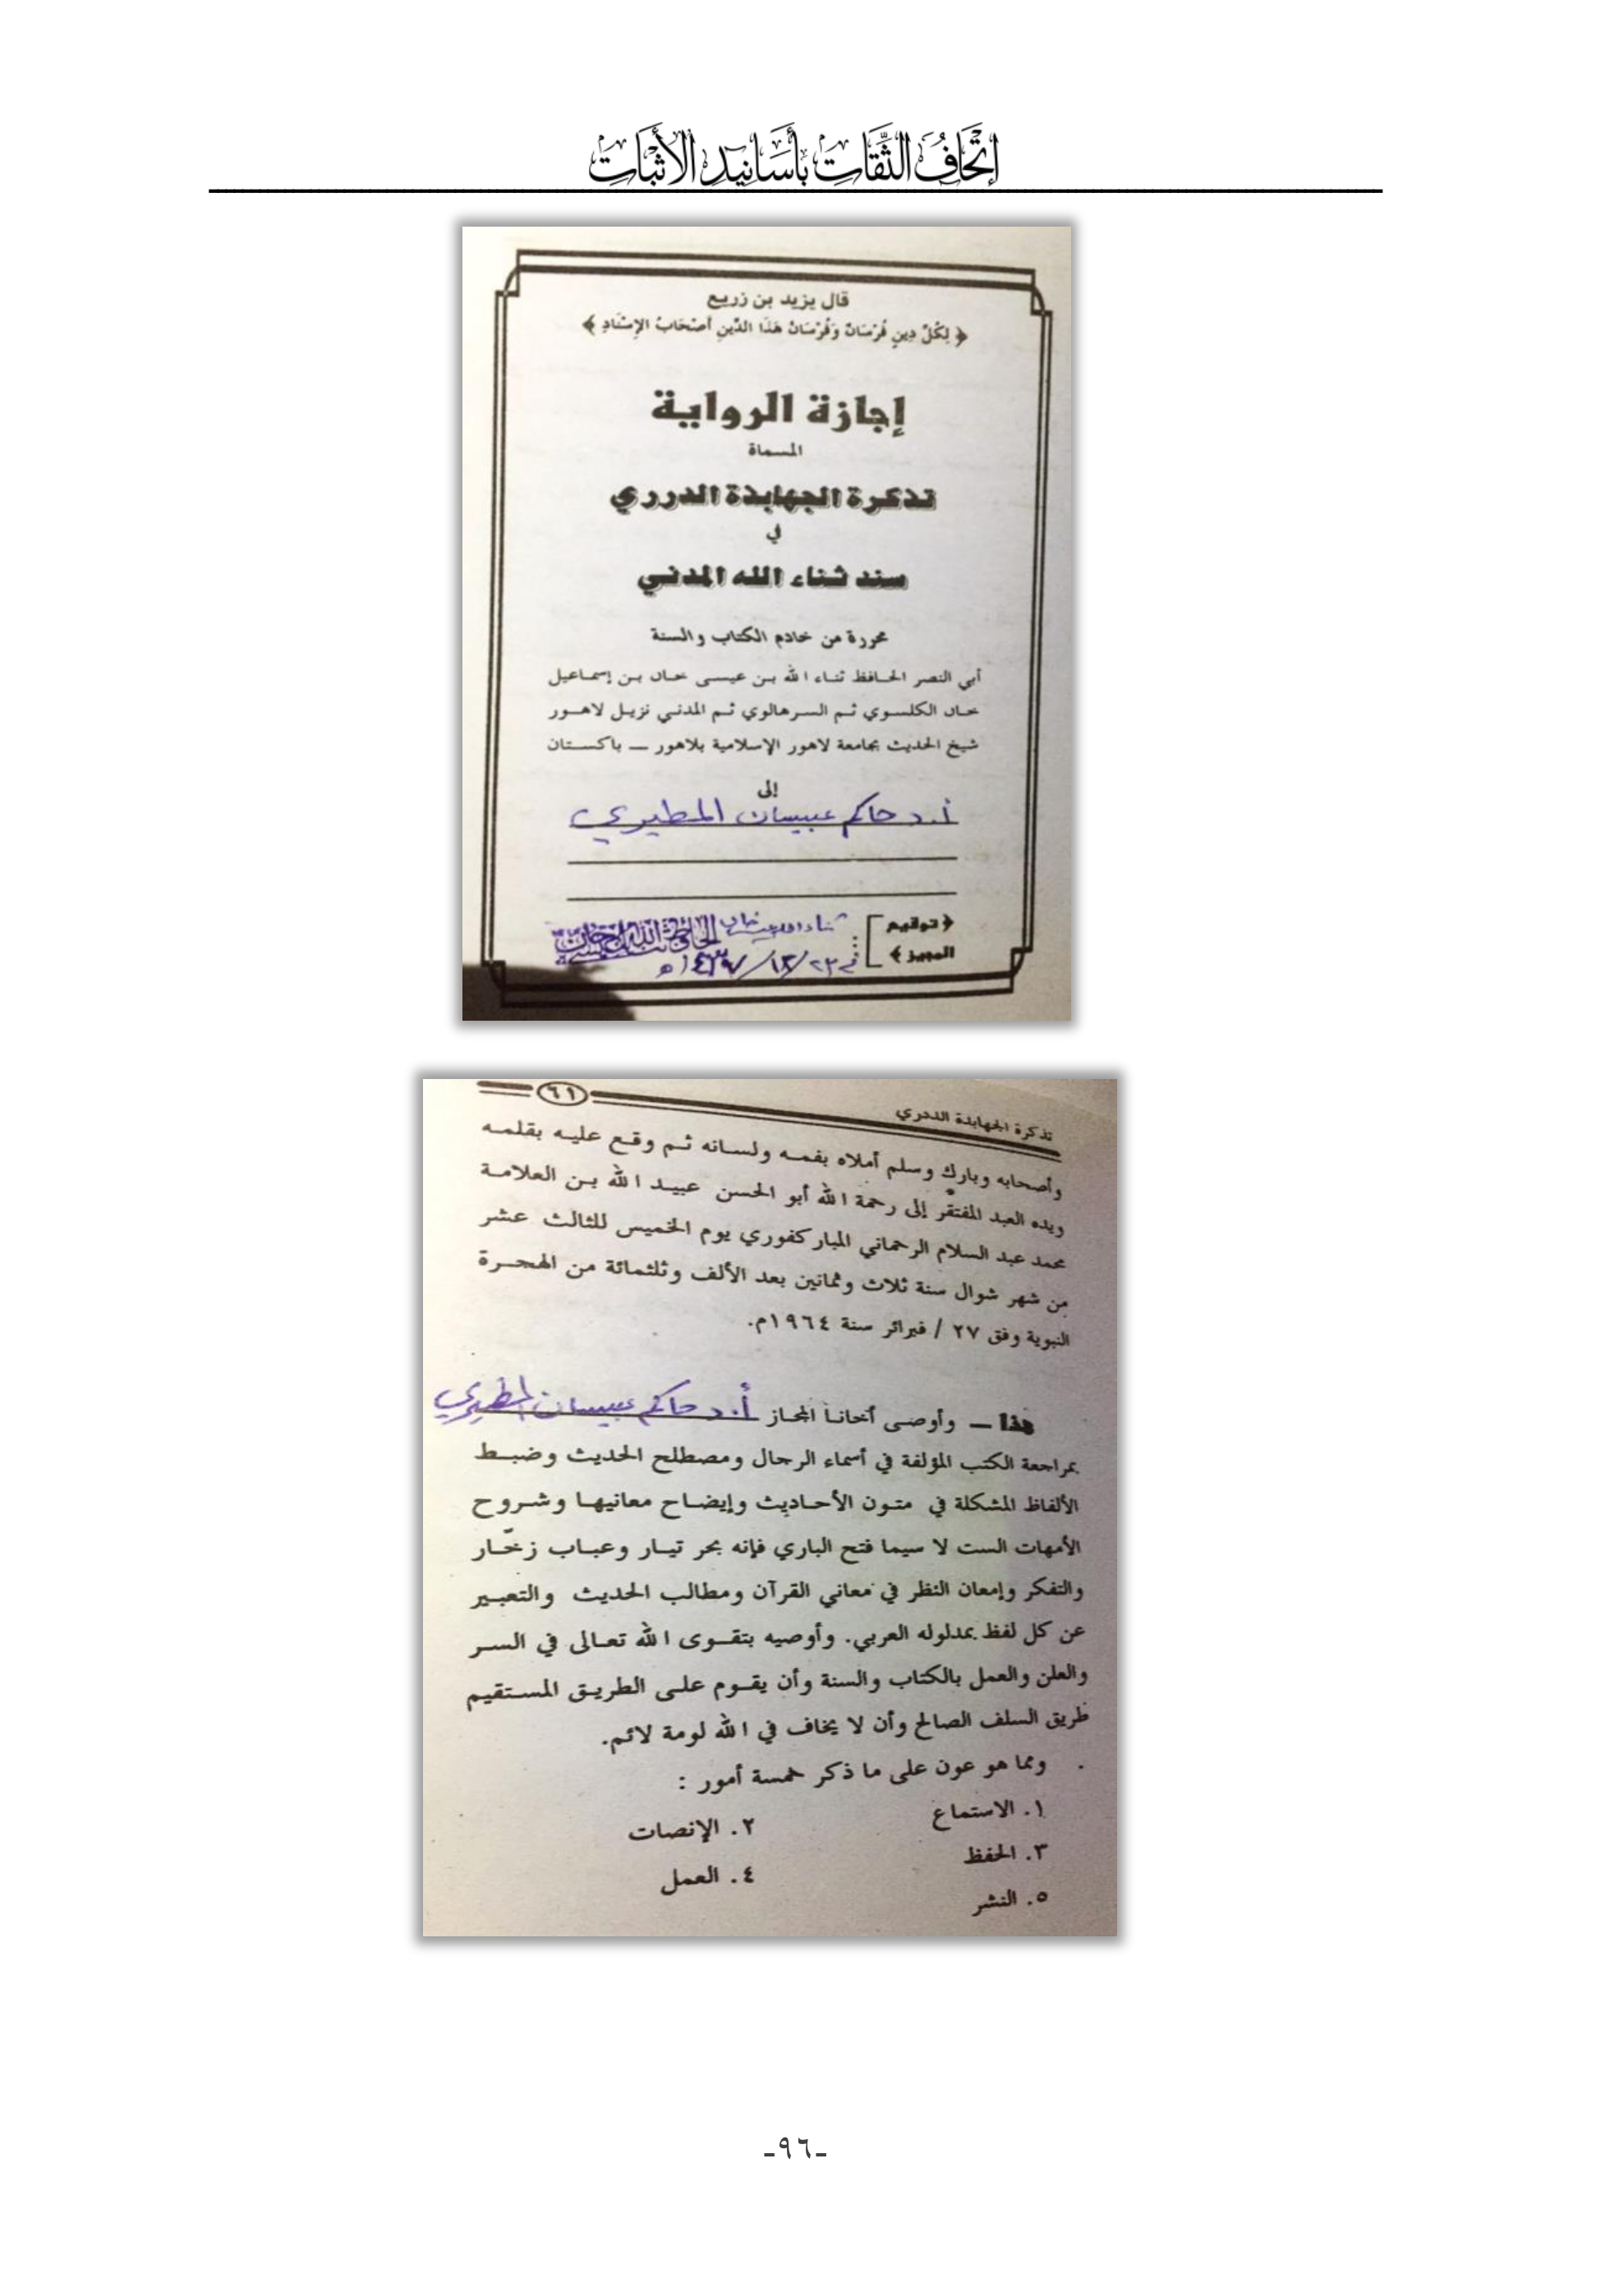 إِتْحَافُ الثِّقَاتِ بِأَسَانِيدِ الأَثْبَاتِ
قال يزيد بن زريع
﴿ لِكُلِّ دِينٍ فُرْسَانٌ وَفُرْسَانُ هَذَا الدِّينِ أَصْحَابُ الإِسْنَادِ ﴾
إجازة الرواية
المسماة
تذكرة الجهابذة الدرري
في
سند ثناء الله المدني
محررة من خادم الكتاب والسنة
أبي النصر الحافظ ثناء الله بن عيسى خان بن إسماعيل
خان الكلسوي ثم السرهالوي ثم المدني نزيل لاهور
شيخ الحديث بجامعة لاهور الإسلامية بلاهور – باكستان
إلى
أ.د حاكم عبيسان المطيري
﴿ توقيع
ثناء الله بن عيسى خان
المجيز ﴾
في ٢٣/١٢/١٤٣٧هـ
٦١
تذكرة الجهابذة الدرري
وأصحابه وبارك وسلم أملاه بفمه ولسانه ثم وقع عليه بقلمه
ويده العبد المفتقر إلى رحمة الله أبو الحسن عبيد الله بن العلامة
محمد عبد السلام الرحماني المباركفوري يوم الخميس للثالث عشر
من شهر شوال سنة ثلاث وثمانين بعد الألف وثلثمائة من الهجرة
النبوية وفق ٢٧ / فبرائر سنة ١٩٦٤م.
هذا – وأوصى أخانا المجاز أ.د حاكم عبيسان المطيري
بمراجعة الكتب المؤلفة في أسماء الرجال ومصطلح الحديث وضبط
الألفاظ المشكلة في متون الأحاديث وإيضاح معانيها وشروح
الأمهات الست لا سيما فتح الباري فإنه بحر تيار وعباب زخّار
والتفكر وإمعان النظر في معاني القرآن ومطالب الحديث والتعبير
عن كل لفظ بمدلوله العربي. وأوصيه بتقوى الله تعالى في السر
والعلن والعمل بالكتاب والسنة وأن يقوم على الطريق المستقيم
طريق السلف الصالح وأن لا يخاف في الله لومة لائم.
ومما هو عون على ما ذكر خمسة أمور :
١. الاستماع ٢. الإنصات
٣. الحفظ ٤. العمل
٥. النشر
-٩٦-